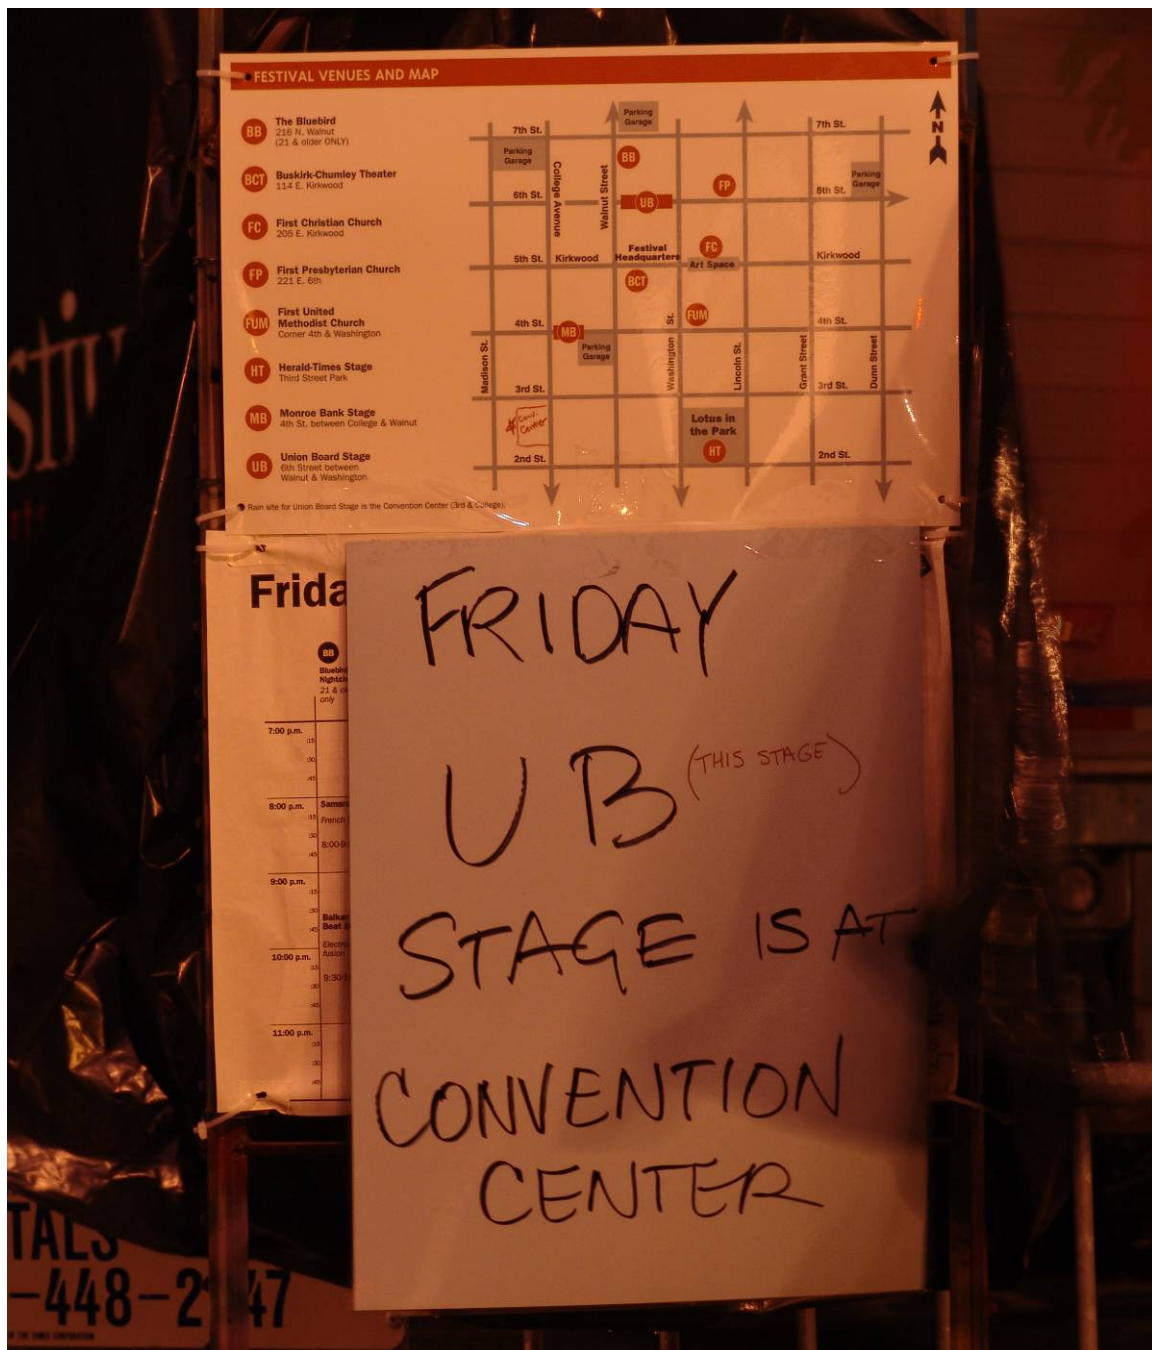 FESTIVAL VENUES AND MAP
BB The Bluebird
216 N. Walnut
(21 & older ONLY)
BCT Buskirk-Chumley Theater
114 E. Kirkwood
FC First Christian Church
205 E. Kirkwood
FP First Presbyterian Church
221 E. 6th
FUM First United
Methodist Church
Corner 4th & Washington
HT Herald-Times Stage
Third Street Park
MB Monroe Bank Stage
4th St. between College & Walnut
UB Union Board Stage
6th Street between
Walnut & Washington
Rain site for Union Board Stage is the Convention Center (3rd & College).
N
Parking
Garage
7th St.
7th St.
Parking
Garage
BB
College Avenue
Walnut Street
FP
Parking
Garage
6th St.
UB
6th St.
Festival
Headquarters
FC
5th St.
Kirkwood
Art Space
Kirkwood
BCT
FUM
4th St.
MB
4th St.
Parking
Garage
Madison St.
Washington St.
Lincoln St.
Grant Street
Dunn Street
3rd St.
3rd St.
Conv.
Center
Lotus in
the Park
HT
2nd St.
2nd St.
stiv
Frida
BB
Bluebird
Nightcl
21 & ol
only
7:00 p.m.
:15
:30
:45
8:00 p.m.
:15
:30
:45
Samar
French
8:00-9:
9:00 p.m.
:15
:30
:45
Balkan
Beat B
Electro
fusion
9:30-1
10:00 p.m.
:15
:30
:45
11:00 p.m.
:15
:30
:45
FRIDAY
UB (THIS STAGE)
STAGE IS AT
CONVENTION
CENTER
TALS
-448-2 47